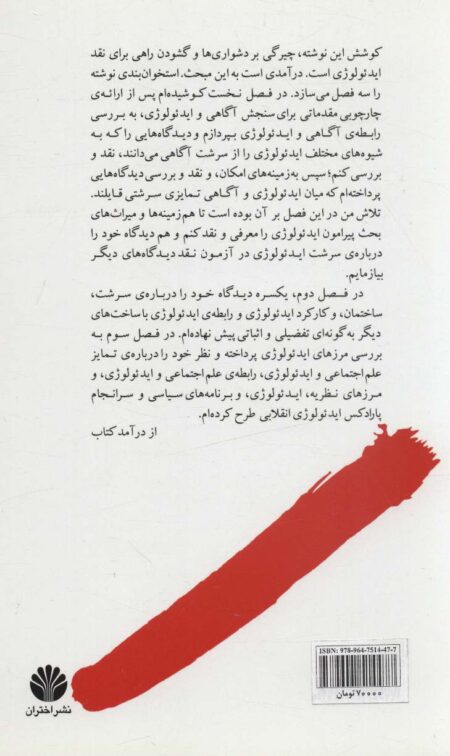 کوشش این نوشته، چیرگی بر دشواری‌ها و گشودن راهی برای نقد
ایدئولوژی است. درآمدی است به این مبحث. استخوان‌بندی نوشته
را سه فصل می‌سازد. در فصل نخست کوشیده‌ام پس از ارائه‌ی
چارچوبی مقدماتی برای سنجش آگاهی و ایدئولوژی، به بررسی
رابطه‌ی آگاهی و ایدئولوژی بپردازم و دیدگاه‌هایی را که به
شیوه‌های مختلف ایدئولوژی را از سرشت آگاهی می‌دانند، نقد و
بررسی کنم؛ سپس به‌زمینه‌های امکان، و نقد و بررسی دیدگاه‌هایی
پرداخته‌ام که میان ایدئولوژی و آگاهی تمایزی سرشتی قایلند.
تلاش من در این فصل بر آن بوده است تا هم‌زمینه‌ها و میراث‌های
بحث پیرامون ایدئولوژی را معرفی و نقد کنم و هم دیدگاه خود را
درباره‌ی سرشت ایدئولوژی در آزمون نقد دیدگاه‌های دیگر
بیازمایم.
در فصل دوم، یکسره دیدگاه خود را درباره‌ی سرشت،
ساختمان، و کارکرد ایدئولوژی و رابطه‌ی ایدئولوژی با ساخت‌های
دیگر به‌گونه‌ای تفضیلی و اثباتی پیش نهاده‌ام. در فصل سوم به
بررسی مرزهای ایدئولوژی پرداخته و نظر خود را درباره‌ی تمایز
علم اجتماعی و ایدئولوژی، رابطه‌ی علم اجتماعی و ایدئولوژی، و
مرزهای نظریه، ایدئولوژی، و برنامه‌های سیاسی و سرانجام
پارادکس ایدئولوژی انقلابی طرح کرده‌ام.
از درآمد کتاب
ISBN: 978-964-7514-47-7
۷۰۰۰۰ تومان
نشر اختران